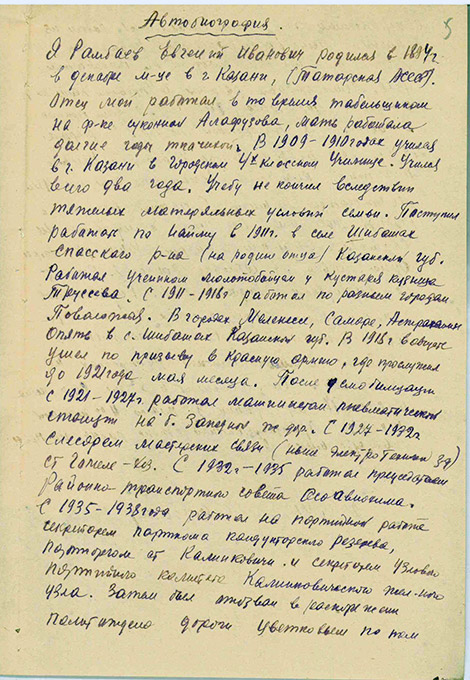 5
Автобиография.
Я Рамбаев Евгений Иванович родился в 1894г
в декабре м-це в г Казани, (Татарская АССР).
Отец мой работал в то время табельщиком
на ф-ке суконной Алафузова, мать работала
долгие годы ткачихой. В 1909-1910 годах учился
в г. Казани в Городском 4х классном Училище. Учился
всего два года. Учебу не кончил вследствии
тяжелых матерьяльных условий семьи. Поступил
работать по найму в 1911г. в селе Шибашах
Спасского р-на (на родине отца) Казанской губ.
Работал учеником молотобойцем у кустаря кузнеца
Трусеева. С 1911-1918г работал по разным городам
Поволжья. В городах Мелекесе, Самаре, Астрахани
Опять в с. Шибашах Казанской губ. В 1918г в августе
ушел по призыву в Красную армию, где прослужил
до 1921 года мая месяца. После демобилизации
с 1921-1927г. работал машинистом пневматической
станции на б. Западных ж дор. С 1927-1932г
слесарем мастерских связи (ныне Электротехнич З-д)
ст Гомель-Хоз. С 1932г.-1935 работал председателем
Районно-транспортного совета Осоавиахима.
С 1935-1938 года работал на партийной работе
секретарем парткома кондукторского резерва,
парторгом ст Калинковичи. и секретарем Узлового
партийного комитета Калинковического жел-ного
узла. Затем был отозван в распоряжении
политотдела дороги Цветковым по пом